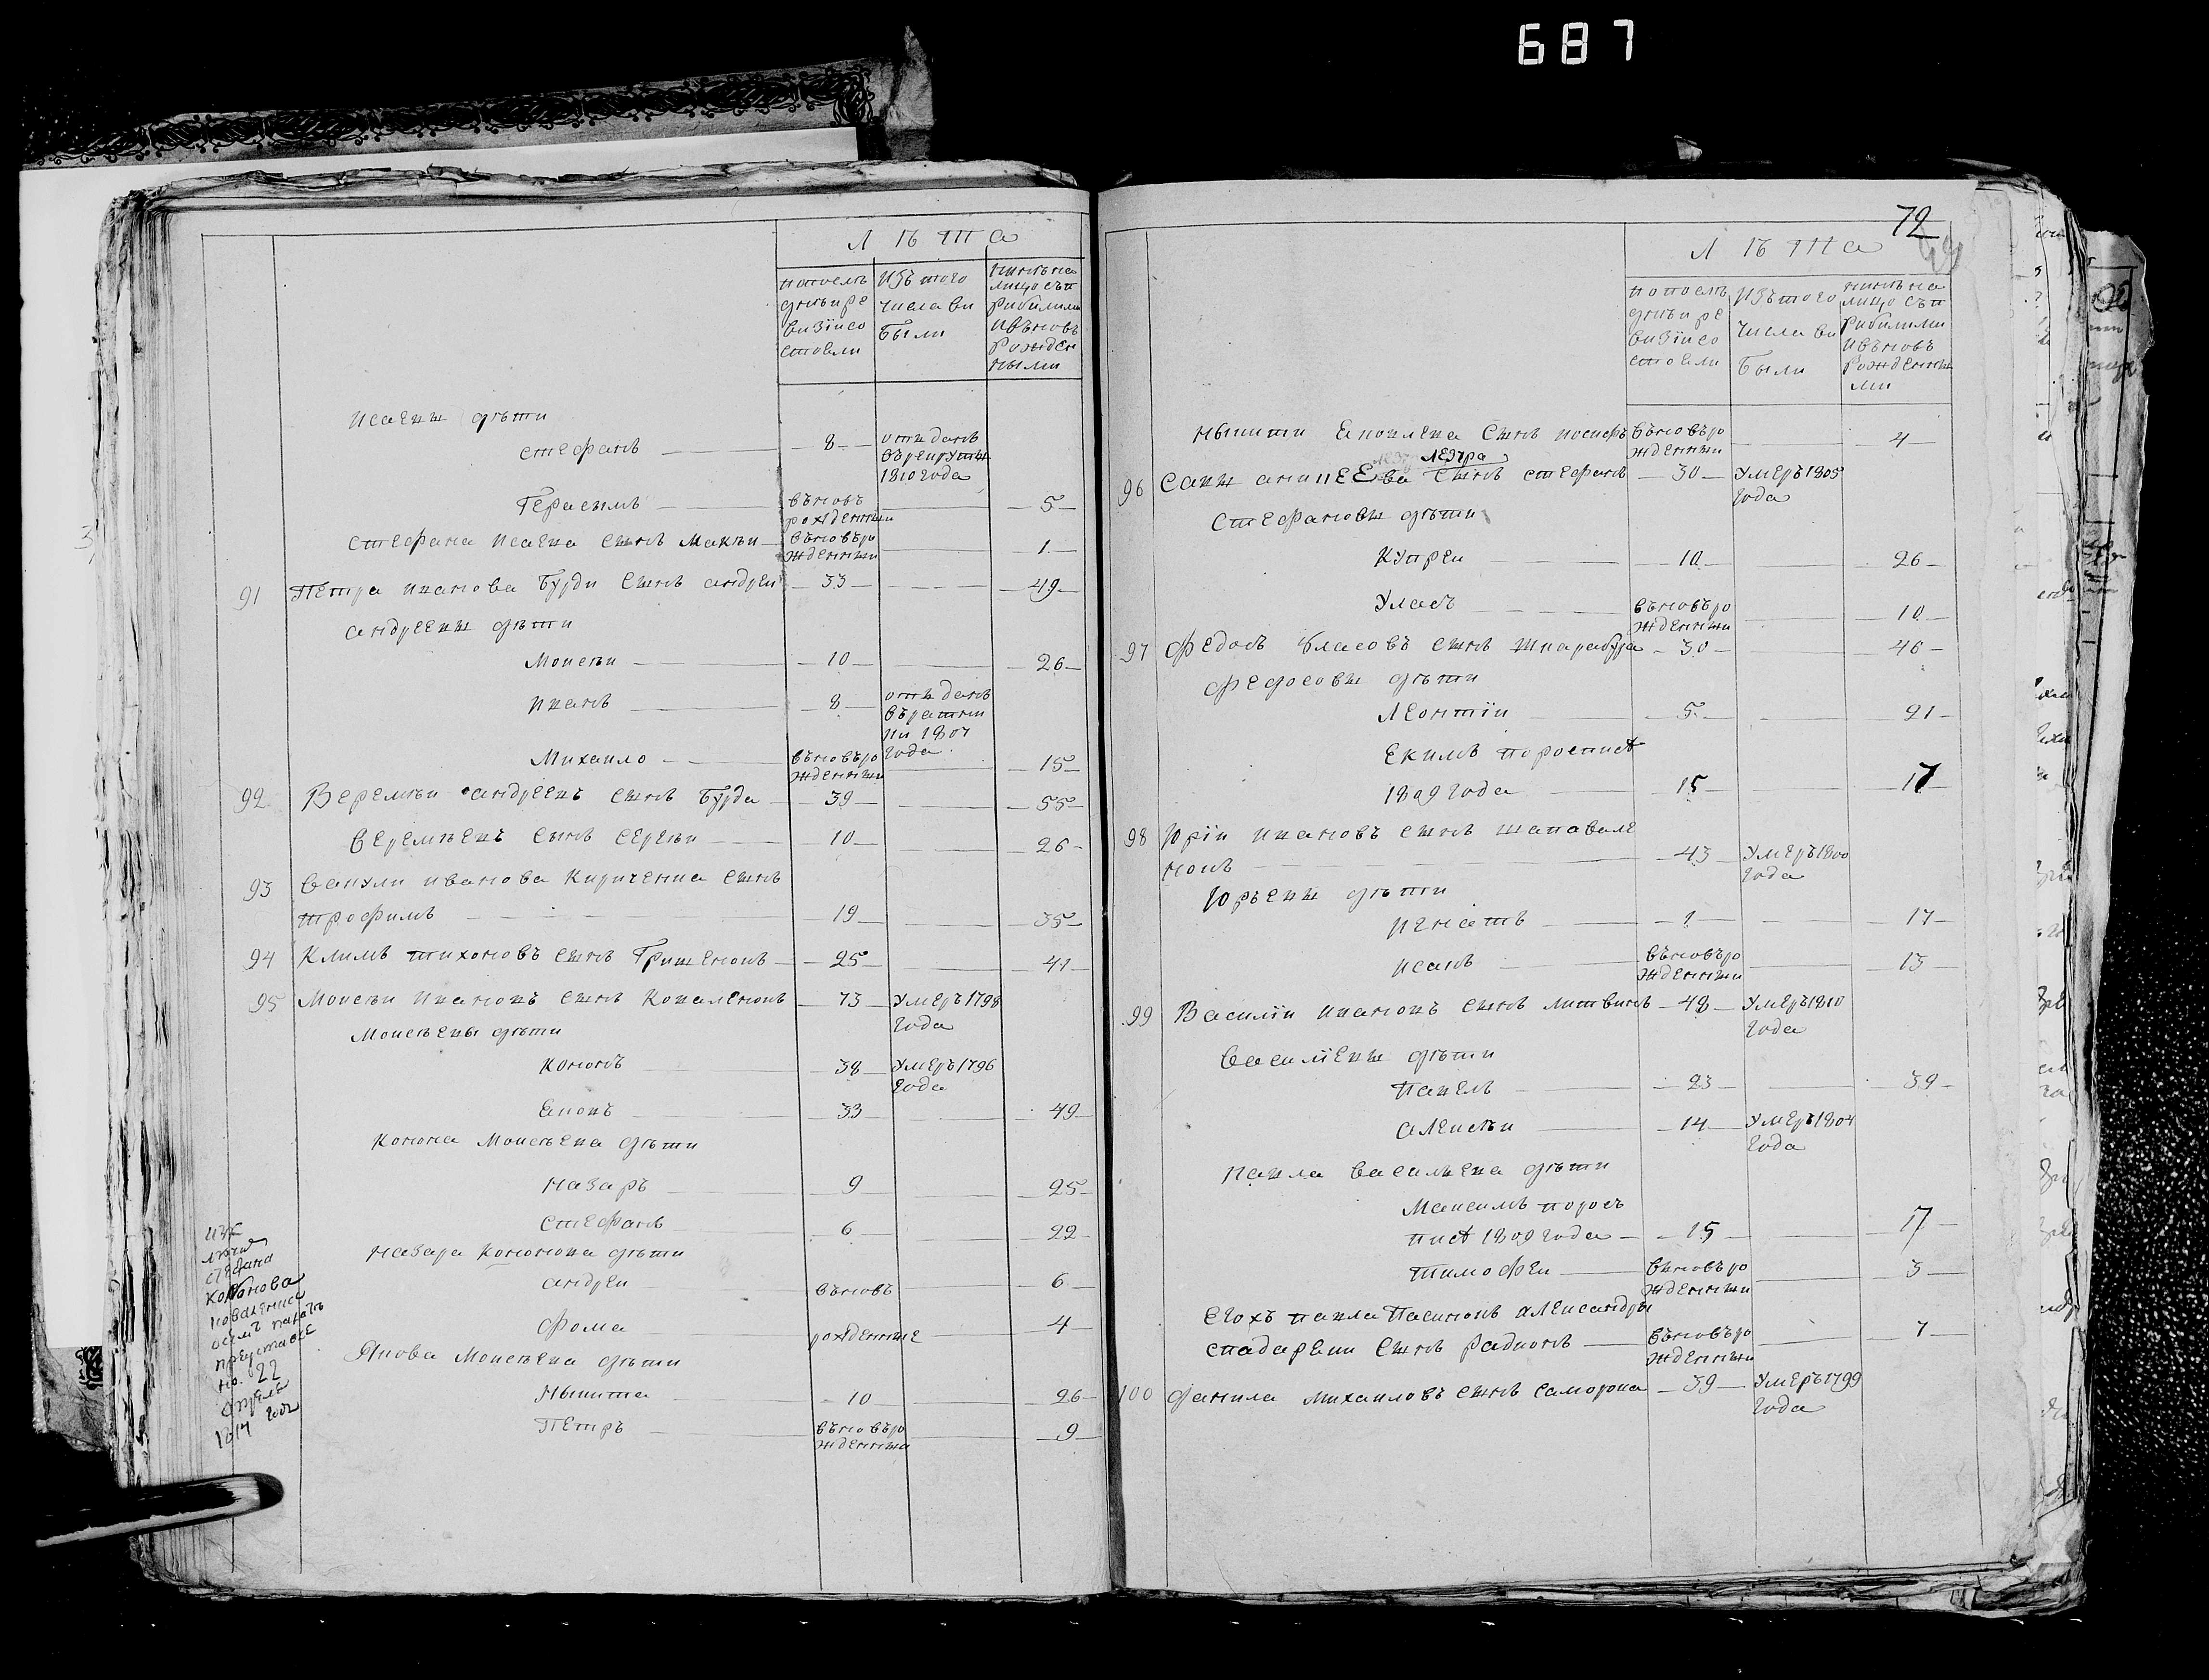 687
Лѣта
попослѣ
днѣи ре
визіи со
стояли
изъ того
числа вы
было
нынѣ на
лицо съ п
рибылыми
и вѣновь
рожден
ными
Исаевы дѣти
Стефанъ 8 отъ данъ
въ рекруты
1810 года
Герасымъ въновь
рожденныи 5
Стефана Исаева сынъ Макѣи въновь ро
жденныи 1
91 Петра Иванова Бурди сынъ Андреи 33 49
Андреевы дѣти
Моисѣи 10 26
Иванъ 8 отъ данъ
въ ратни
ки 1807
года
Михаило въновь ро
жденныи 15
92 Веремѣи Андреевъ сынъ Бурда 39 55
Веремѣевъ сынъ Сергѣи 10 26
93 Вакули Иванова Кириченка сынъ
Трофимъ 19 35
94 Климъ Тихоновъ сынъ Грищенокъ 25 41
95 Моисѣи Ивановъ сынъ Коваленокъ 73 Умеръ 1798
года
Моисѣевы дѣти
Кононъ 38 Умеръ 1796
года
Яковъ 33 49
Конона Моисѣева дѣти
Назаръ 9 25
Стефанъ 6 22
Назара Кононова дѣти
Андреи въновь 6
Фома рожденные 4
Якова Моисѣева дѣти
Мыкита 10 26
Петръ въновь ро
жденныи 9
Стефана
Кононова
Коваленка
но. 22
апрѣля
1814 года
72
Лѣта
попослѣ
днѣи ре
визіи со
стояли
изъ того
числа вы
было
нынѣ на
лицо съ п
рибылыми
и вѣновь
рожденны
ми
Мыкити Яковлева сынъ Иосифъ въновь ро
жденныи 4
96 Савы Аникеева сынъ Стефанъ 30 Умеръ 1805
года
Стефановы дѣти
Купреи 10 26
Уласъ въновь ро
жденныи 10
97 Федосъ Власовъ сынъ Шкарабура 30 46
Федосовы дѣти
Леонтіи 5 21
Екимъ пороспист
1809 года 15 17
98 Юрій Ивановъ сынъ Шаповале
нокъ 43 Умеръ 1800
года
Юрьевы дѣти
Игнатъ 1 17
Исакъ въновь ро
жденныи 13
99 Василіи Ивановъ сынъ Литвинъ 48 Умеръ 1810
года
Василіевы дѣти
Павелъ 23 39
Алексѣи 14 Умеръ 1804
года
Павла Васильева дѣти
Максимъ порос
пист 1809 года 15 17
Тимофеи въновь ро
жденныи 3
Егожъ Павла Пасинокъ Александры
Сподарени сынъ Радионъ въновь ро
жденныи 7
100 Данила Михаиловъ сынъ Саморока 39 Умеръ 1799
года